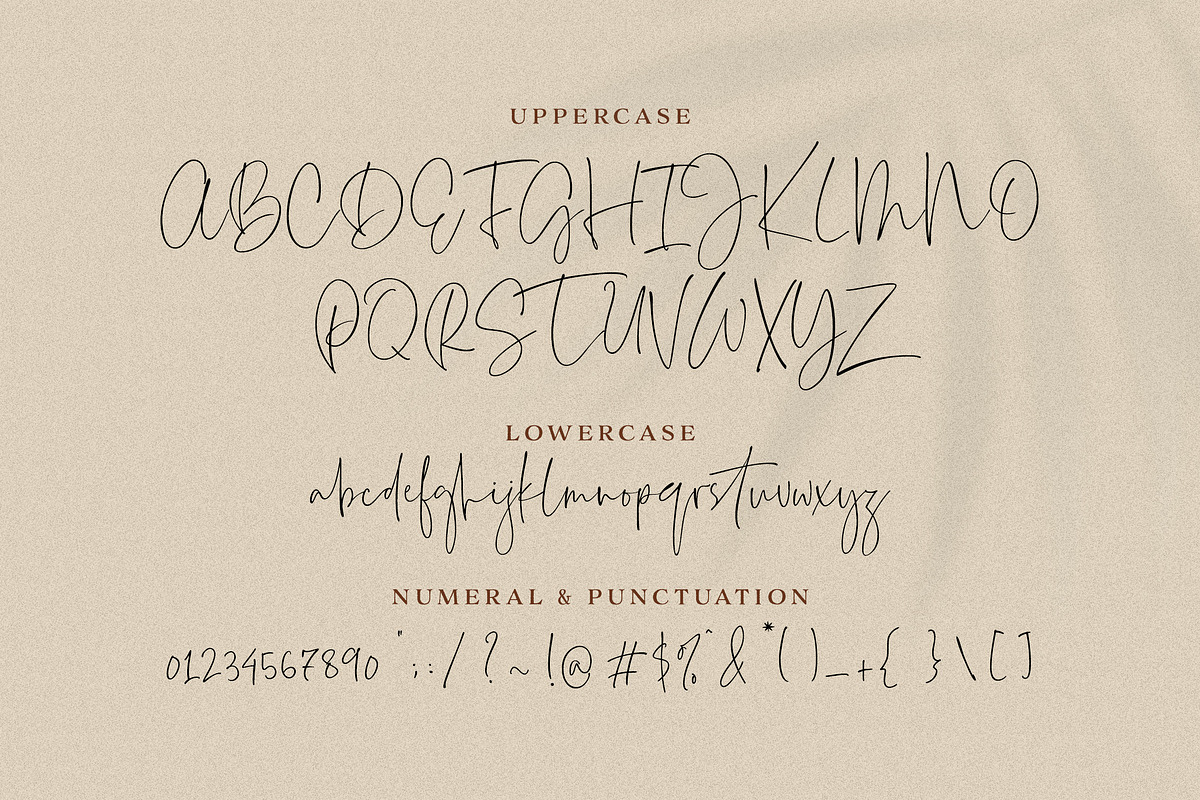 UPPERCASE
ABCDEFGHIJKLMNO
PQRSTUVWXYZ
LOWERCASE
abcdefghijklmnopqrstuvwxyz
NUMERAL & PUNCTUATION
01234567890 " ; : / ? ~ ! @ # $ % ^ & * ( ) _ + { } \ [ ]